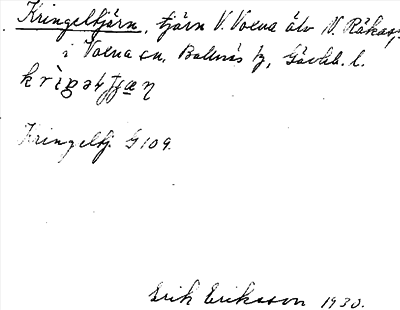 Kringeltjärn, tjärn V. Voxna älv N. Råkasj
i Voxna sn, Bollnäs tg, Gävleb. l.
Kringeltj. G 109.
Erik Eriksson 1930.